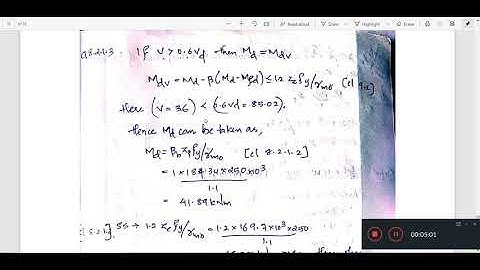 Read aloud Draw Highlight Erase
g8.2.1.3 If V > 0.6Vd then Md = Mdv
Mdv = Md - β(Md - Mfd) ≤ 1.2 Ze fy/γm0 [cl 9.2]
Here (V = 36) < (.6Vd = 85.02).
Hence Md can be taken as,
Md = βb Zp fy/γm0 [cl 8.2.1.2]
= 1 × 184.34 × 250 × 10³
1.1
= 41.89 kNm
[8.2.1.2] SS → 1.2 Ze fy/γm0 = 1.2 × 169.7 × 10³ × 250
1.1
00:05:01